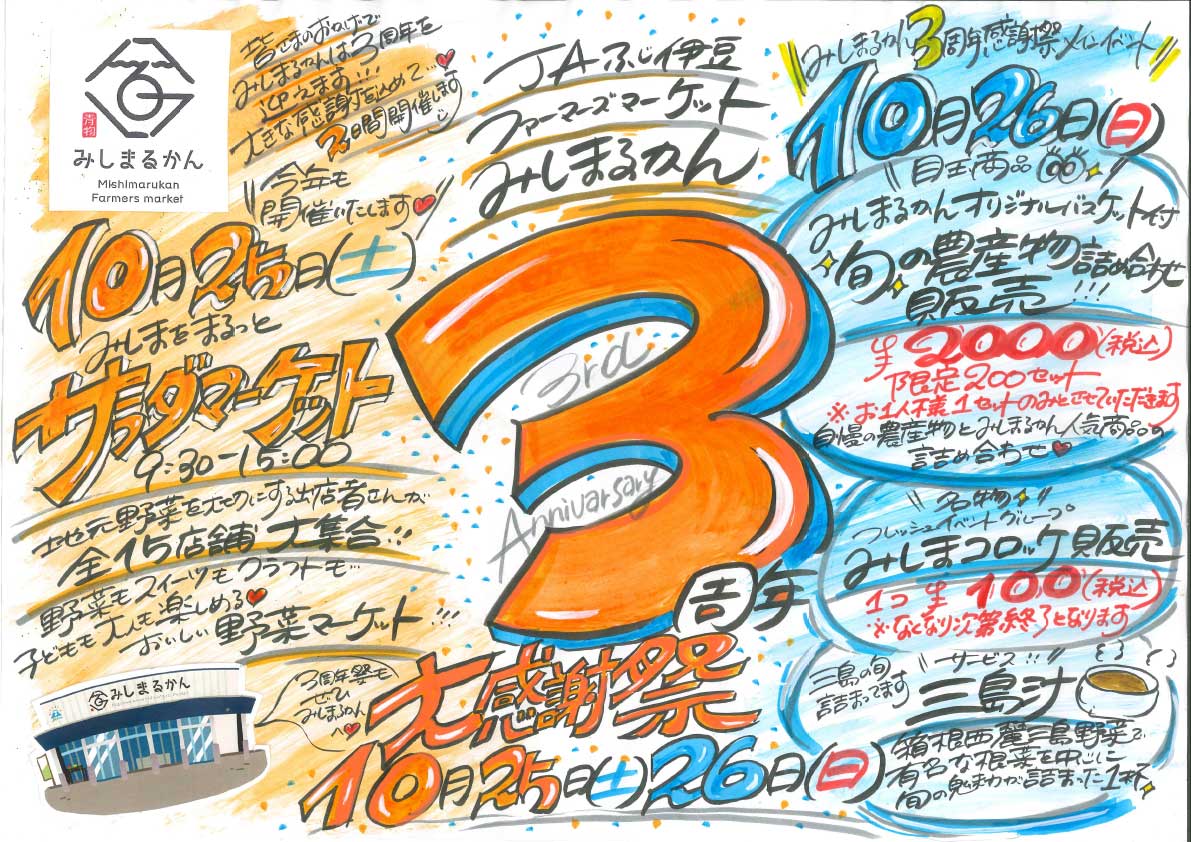 青物
みしまるかん
Mishimarukan
Farmers market
皆さまのおかげで
みしまるかんは3周年を
迎えます!!!
大きな感謝を込めて♡
2日間開催します
JAふじ伊豆
ファーマーズマーケット
みしまるかん
今年も
開催いたします♥
10月25日(土)
みしまをまるっと
サラダマーケット
9:30-15:00
地元野菜を大切にする出店者さんが
全15店舗 大集合!!
野菜もスイーツもクラフトも…
子どもも大人も楽しめる♥
おいしい野菜マーケット!!!
みしまるかん
3周年祭も
ぜひ
みしまるかん
へ♥
3rd
3
Annivarsary
周年
大感謝祭
10月25日(土)26日(日)
みしまるかん3周年感謝祭メインイベント
10月26日(日)
目玉商品
みしまるかんオリジナルバスケット付
旬の農産物詰め合わせ
販売!!!
¥2000(税込)
限定200セット
※お1人様1セットのみとさせていただきます
自慢の農産物とみしまるかん人気商品の
詰め合わせ♥
名物
フレッシュイベントグループ。
みしまコロッケ販売
1コ ¥100(税込)
※なくなり次第終了となります
三島の旬
詰まってます
サービス!!
三島汁
箱根西麓三島野菜で
有名な根菜を中心に
旬の魅力が詰まった1杯